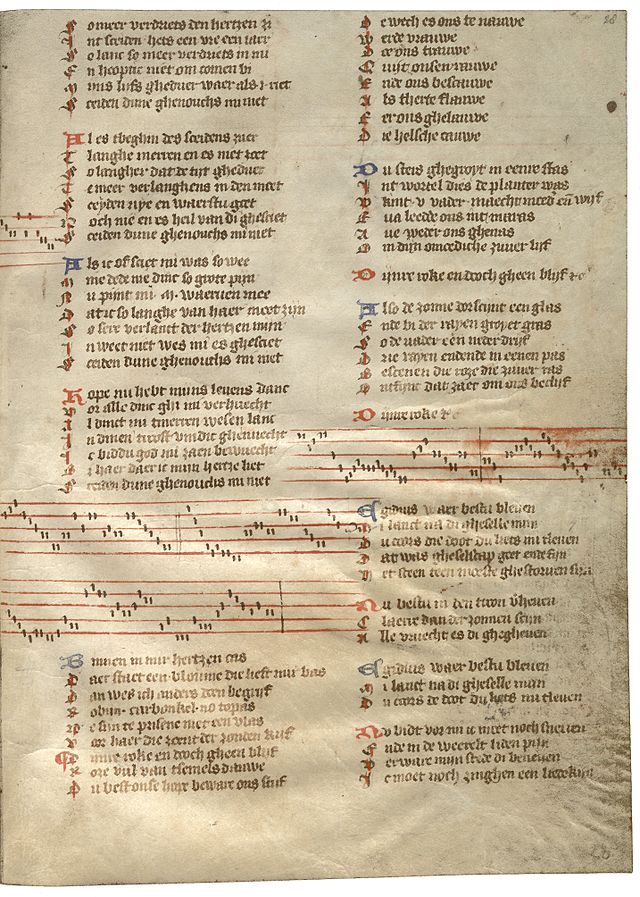 So meer verdriets den hertzen zi
Int sceiden hets een vre een iaer
So lanc so meer verdriets in mi
En hoptic niet om comen bi
Mijns lijfs gheduer waer als i riet
Sceiden dune ghenouchs mi niet
Al es tbeghin des sceidens zuer
Tlanghe merren en es niet zoet
So langher dat de tijt gheduer
Te meer verlanghens in den moet
Sceyden nye en waerstu goet
Och nie en es heil van di ghesciet
Sceiden dune ghenouchs mi niet
Als ic of sciet mi was so wee
Me dede me dinc so grote pijn
Nu pijnt mi .M. waerven mee
Dat ic so langhe van haer moet zijn
So sere verlanct der hertzen mijn
In weet niet wes mi es ghesciet
Sceiden dune ghenouchs mi niet
Hope nu hebt mijns levens danc
Vor alle dinc ghi mi verhuecht
I dinct mi tmerren wesen lanc
In dinen troost vindic ghenuecht
Ic biddu god mi zaen bewuecht
Bi haer daer ic mijn hertze liet
Sceiden dune ghenouchs mi niet
Binnen in mir hertzen cas
Daer staet een bloume die lieft mir bas
Dan wes ich anders deen begrijf
Robijn carbonkel no topas
Re sijn te prisene niet een vlas
Vor haer die zoent der zonden kijf
Dijnre roke en dooch gheen blijf
Rore vul van tsemels dauwe
Du best onse hope beware ons stijf
28
De wech es ons te nauwe
Werde vrauwe
Doe ons trauwe
Quijt onsen rauwe
Ende ons bescauwe
Als therte flauwe
Eer ons ghelauwe
Die helsche cauwe
Du steis ghegroyt in eenre stas
Int wortel dies de planter was
Kint v vader maecht moeder en wijf
Eva leedde ons int maras
Ave weder ons ghenas
Bi dijn omoediche zuver lijf
Dijnre roke en dooch gheen blijf &c
Also de zonne dorscinit een glas
Ende bi der rayen groyet gras
So de vader een neder drijf
Drie rayen endende in eenen pas
Bescenen die roze die zuver was
Ontfinc dat zaet om ons beclijf
Dijnre roke &c
Egidius waer bestu bleven
Mi lanct na di gheselle mijn
Du coors die doot du liets mi tleven
Dat was gheselscap goet ende fijn
Het sceen teen moeste ghestorven sijn
Nu bestu in den troon verheven
Claerre dan der zonnen scijn
Alle vruecht es di ghegheven
Egidius waer bestu bleven
Mi lanct na di gheselle mijn
Du coors die doot du liets mi tleven
Nu bidt vor mi ic moet noch sneven
Ende in de weerelt liden pijn
Verware mijn stede di beneven
Ic moet noch zinghen een liedekijn